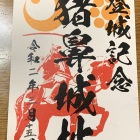 登城記念
猪鼻城址
令和二年二月五